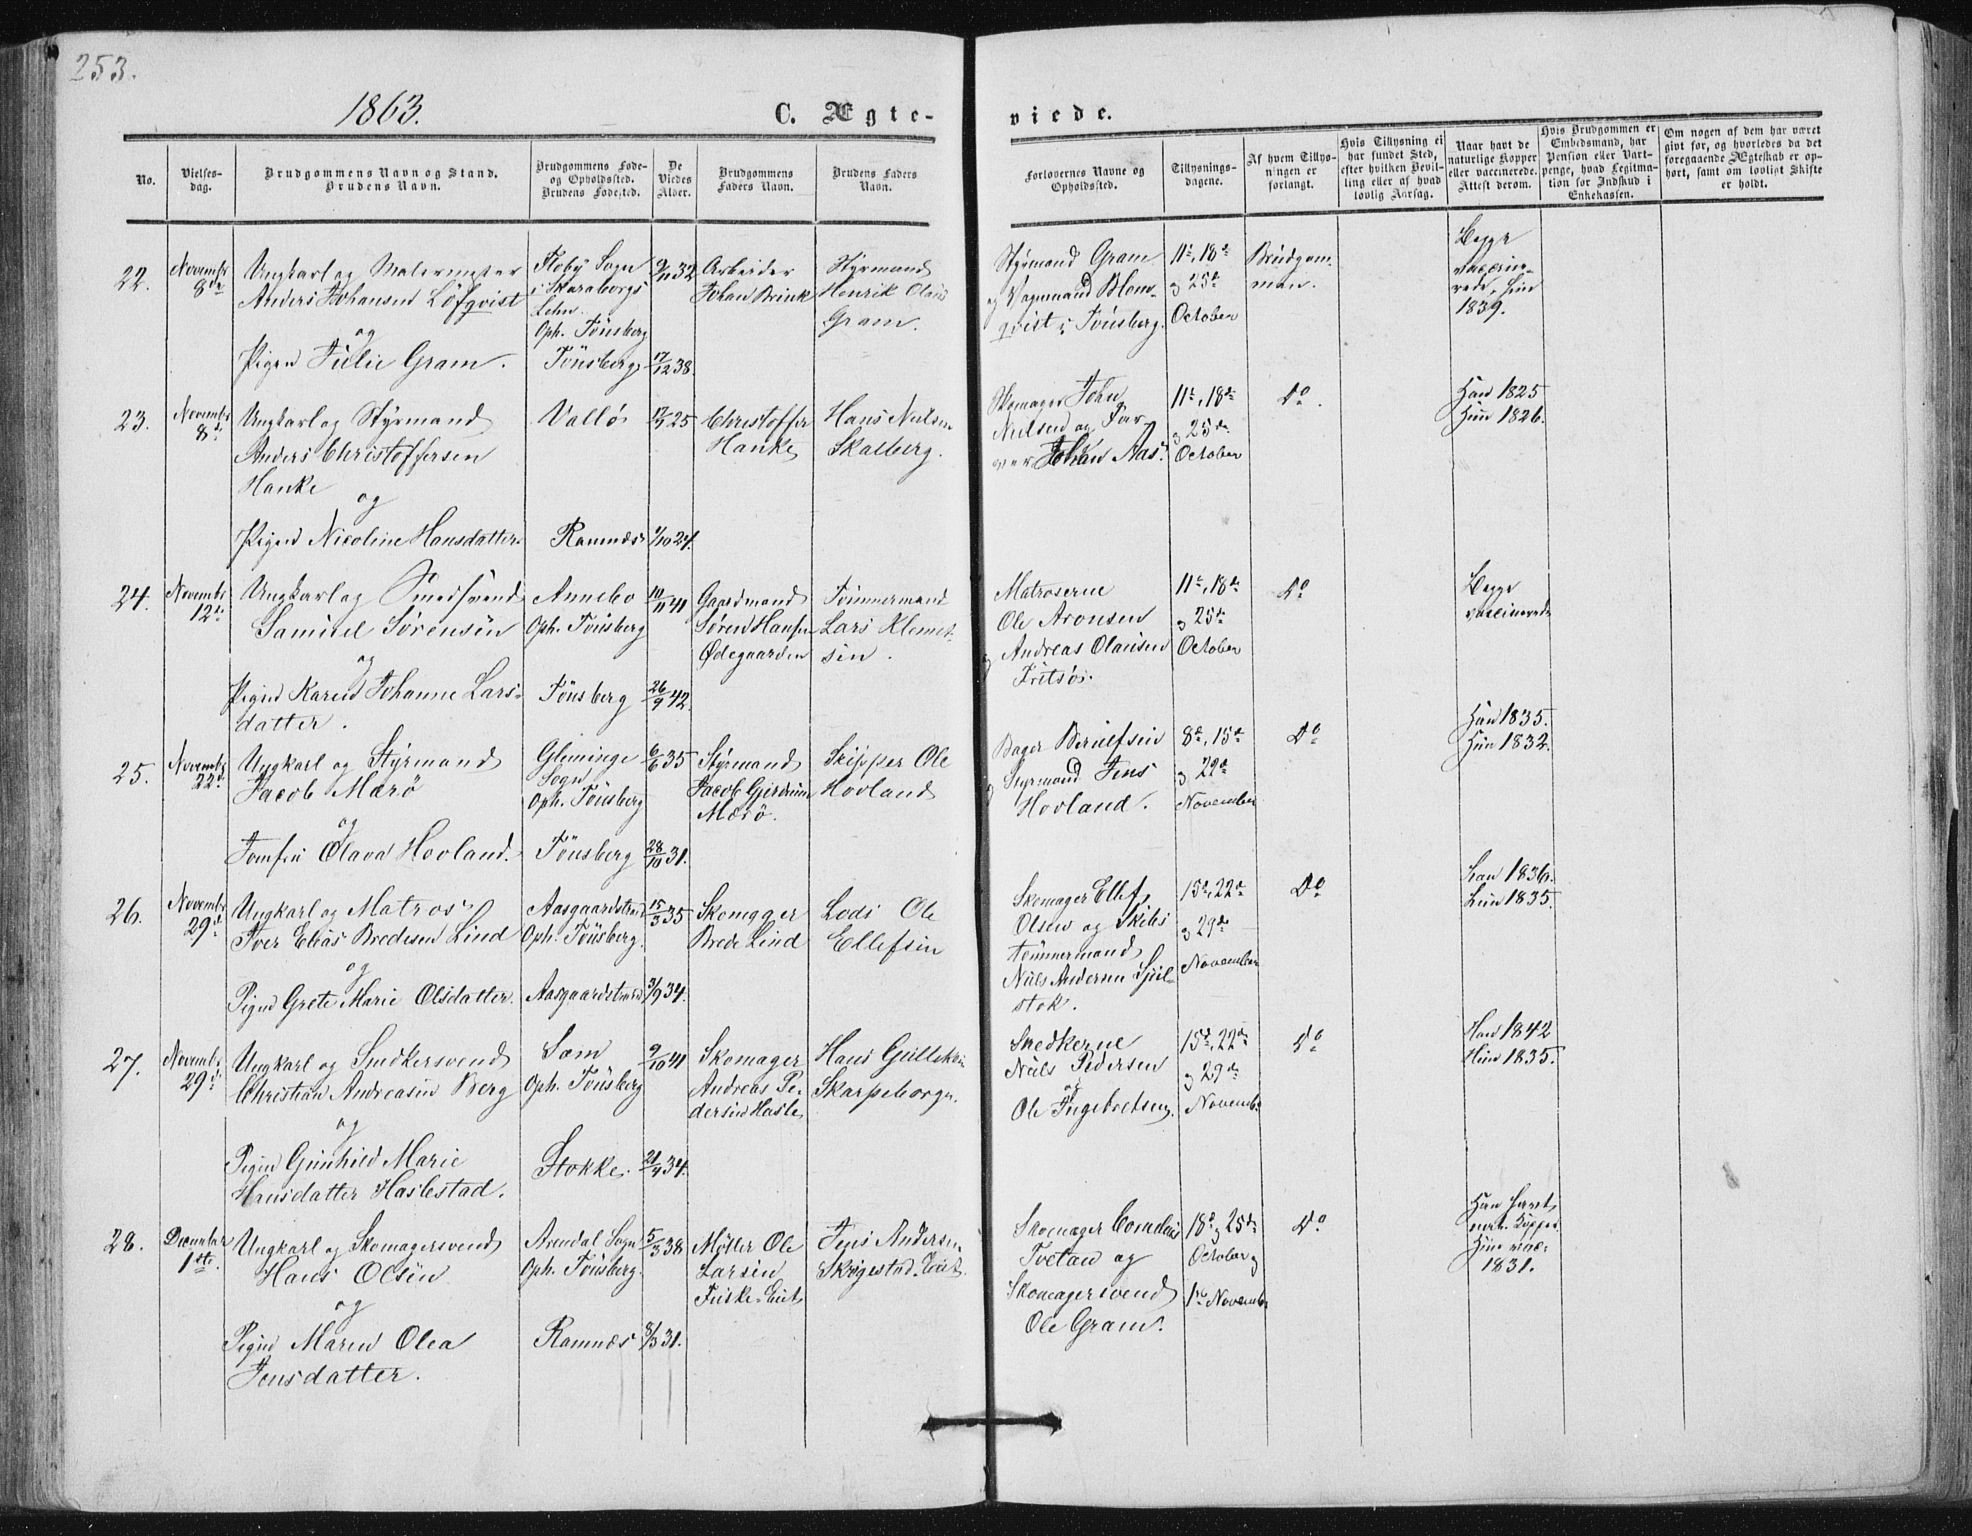 253.
1863.
C. Ægte-
viede.
No.
Vielses-
dag.
Brudgommens Navn og Stand.
Brudens Navn.
Brudgommens Føde-
og Opholdssted.
Brudens Fødested.
De
Viedes
Alder.
Brudgommens
Faders Navn.
Brudens Faders
Navn.
Forlovernes Navne og
Opholdssted.
Tillysnings-
dagene.
Af hvem Tillys-
ningen er
forlangt.
Hvis Tillysning ei
har fundet Sted,
efter hvilken Bevil-
ling eller af hvad
lovlig Aarsag.
Naar havt de
naturlige Kopper
eller vaccinerede.
Attest derom.
Hvis Brudgommen er
Embedsmand, har
Pension eller Vart-
penge, hvad Legitima-
tion for Indskud i
Enkekassen.
Om nogen af dem har været
gift før, og hvorledes da det
foregaaende Ægteskab er op-
hørt, samt om lovligt Skifte
er holdt.
22.
Novembr
8de
Ungkarl og Malermester
Anders Johansen Löfqvist
og
Pigen Julie Gram.
Floby Sogn
i Skaraborgs
Lehn.
Oph. Tönsberg
Tönsberg
9/11 32
17/12 38.
Arbeider
Johan Brink
Styrmand
Henrik Olaus
Gram.
Styrmand Gram
og Vognmand Blom-
qvist i Tönsberg.
11te, 18de
og 25de
October
Brudgom-
men.
Begge
vaccine-
rede, hun
1839.
23.
Novembr
8de
Ungkarl og Styrmand
Anders Christoffersen
Hanke
og
Pigen Nicoline Hansdatter
Vallö
Ramnæs
25
1/10 24.
Christoffer
Hanke
Hans Nielsen
Skalberg.
Skomager John
Nielsen og Far-
ver Johan Aas.
11te, 18de
og 25de
October
Do.
Han 1825
Hun 1826.
24.
Novembr
12te
Ungkarl og Smedsvend
Samuel Sörensen
og
Pigen Karen Johanne Lars-
datter.
Annebo
Oph. Tönsberg
Tönsberg
10/11 41
26/9 42.
Gaardmand
Søren Hansen
Ødegaarden
Tömmermand
Lars Klemet-
sen.
Matroserne
Ole Aronsen
og Andreas Olausen
Fritsöe.
11te, 18de
og 25de
October
Do
Begge
vaccinerede
25.
Novembr
22de
Ungkarl og Styrmand
Jacob Marö
og
Jomfru Olava Hovland.
Glimminge
Sogn
Oph. Tönsberg
Tönsberg
6/6 35
28/10 31.
Styrmand
Jacob
Marö.
Skipper Ole
Hovland
Bager Berulfsen
og Styrmand Jens
Hovland.
8de, 15de
og 22de
November
Do
Han 1835.
Hun 1832.
26.
Novembr
29de
Ungkarl og Matros
Iver Elias Bredesen Lind
og
Pigen Grete Marie Olsdatter.
Aasgaardstrand
Oph. Tönsberg.
Aasgaardstrand
15/3 35
3/9 34.
Skomager
Brede Lind
Lods Ole
Ellefsen
Skomager Ellef
Olsen og Skibs
tömmermand
Niels Andersen
stok.
15de, 22de
og 29de
November
Do
Han 1836.
Hun 1835.
27.
Novembr
29de
Ungkarl og Snedkersvend
Christian Andreasen Berg
og
Pigen Gunhild Marie
Hansdatter Haslestad.
Sæm
Oph. Tönsberg
Stokke.
9/10 41
21/4 34.
Skomager
Andreas Pe-
dersen Hasle
Hans Gulleksen
Skarpeborg.
Snedkerne
Niels Pedersen
og
Ole Ingebretsen.
15de, 22de
og 29de
Novembr
Do
Han 1842
Hun 1835.
28.
December
1ste.
Ungkarl og Skomagersvend
Hans Olsen
og
Pigen Maren Olea
Jensdatter.
Arendal Sogn
Oph. Tönsberg.
Ramnæs
5/3 38
8/3 31.
Møller Ole
Larsen
Jens Andersen
Skomager Cornelius
Tvetan og
Skomagersvend
Ole Gram.
18de og 25de
October og
1ste November
Do
Han havt
nat. Kopper.
Hun vacc.
1831.